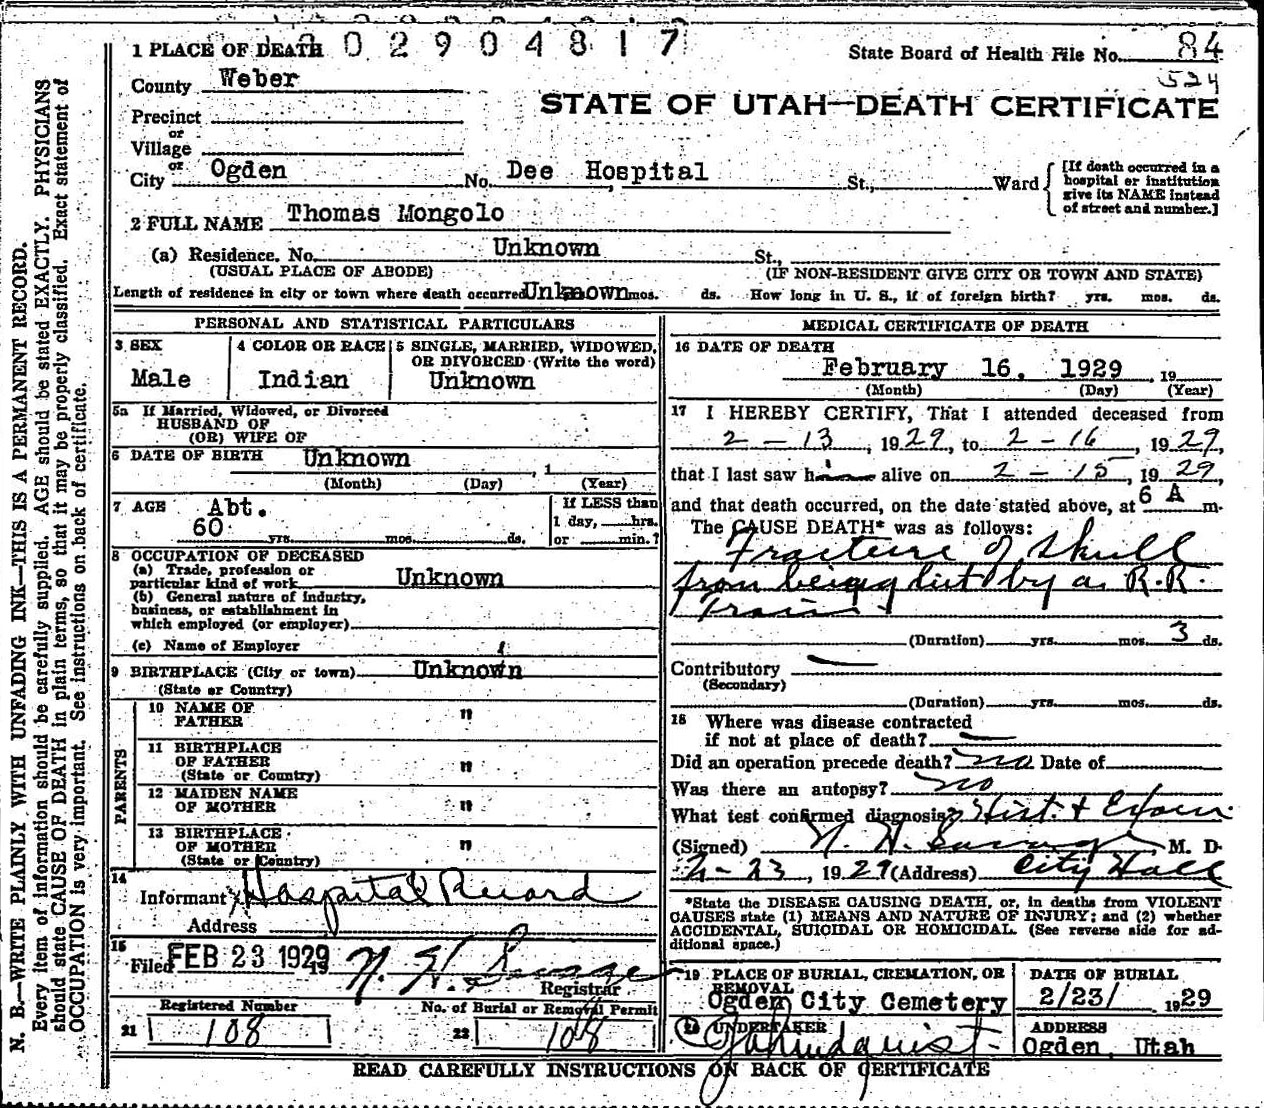 0 2 9 0 4 8 1 7
1 PLACE OF DEATH
State Board of Health File No. 84
524
County Weber
STATE OF UTAH—DEATH CERTIFICATE
Precinct
or
Village
or
City Ogden No. Dee Hospital St., Ward
[If death occurred in a
hospital or institution
give its NAME instead
of street and number.]
2 FULL NAME Thomas Mongolo
(a) Residence. No. Unknown St.,
(USUAL PLACE OF ABODE) (IF NON-RESIDENT GIVE CITY OR TOWN AND STATE)
Length of residence in city or town where death occurred Unknown mos. ds. How long in U. S., if of foreign birth? yrs. mos. ds.
PERSONAL AND STATISTICAL PARTICULARS
3 SEX
Male
4 COLOR OR RACE
Indian
5 SINGLE, MARRIED, WIDOWED,
OR DIVORCED (Write the word)
Unknown
5a If Married, Widowed, or Divorced
HUSBAND OF
(OR) WIFE OF
6 DATE OF BIRTH Unknown , 1
(Month) (Day) (Year)
7 AGE Abt.
60 yrs. mos. ds.
If LESS than
1 day, hrs.
or min.?
8 OCCUPATION OF DECEASED
(a) Trade, profession or
particular kind of work Unknown
(b) General nature of industry,
business, or establishment in
which employed (or employer)
(c) Name of Employer
9 BIRTHPLACE (City or town) Unknown
(State or Country)
PARENTS
10 NAME OF
FATHER "
11 BIRTHPLACE
OF FATHER "
(State or Country)
12 MAIDEN NAME
OF MOTHER "
13 BIRTHPLACE
OF MOTHER "
(State or Country)
14
Informant Hospital Record
Address
15
Filed FEB 23 1929 19
Registrar
Registered Number
21 108
No. of Burial or Removal Permit
22 108
MEDICAL CERTIFICATE OF DEATH
16 DATE OF DEATH
February 16. 1929 , 19
(Month) (Day) (Year)
17 I HEREBY CERTIFY, That I attended deceased from
2 - 13 , 1929, to 2 - 16 , 1929,
that I last saw him alive on 2 - 15 , 1929,
and that death occurred, on the date stated above, at 6 A m.
The CAUSE DEATH* was as follows:
Fracture of Skull
from being hit by a R.R.
Train.
(Duration) yrs. mos. 3 ds.
Contributory
(Secondary)
(Duration) yrs. mos. ds.
18 Where was disease contracted
if not at place of death?
Did an operation precede death? no Date of
Was there an autopsy? no
What test confirmed diagnosis? Hist. + Exam
(Signed) N. H. M. D.
2-23, 1929 (Address) City Hall
*State the DISEASE CAUSING DEATH, or, in deaths from VIOLENT
CAUSES state (1) MEANS AND NATURE OF INJURY; and (2) whether
ACCIDENTAL, SUICIDAL OR HOMICIDAL. (See reverse side for ad-
ditional space.)
19 PLACE OF BURIAL, CREMATION, OR
REMOVAL
Ogden City Cemetery
DATE OF BURIAL
2/23/ 1929
20 UNDERTAKER
Lindquist
ADDRESS
Ogden, Utah
READ CAREFULLY INSTRUCTIONS ON BACK OF CERTIFICATE
N. B.—WRITE PLAINLY WITH UNFADING INK—THIS IS A PERMANENT RECORD.
Every item of information should be carefully supplied. AGE should be stated EXACTLY. PHYSICIANS
should state CAUSE OF DEATH in plain terms, so that it may be properly classified. Exact statement of
OCCUPATION is very important. See instructions on back of certificate.